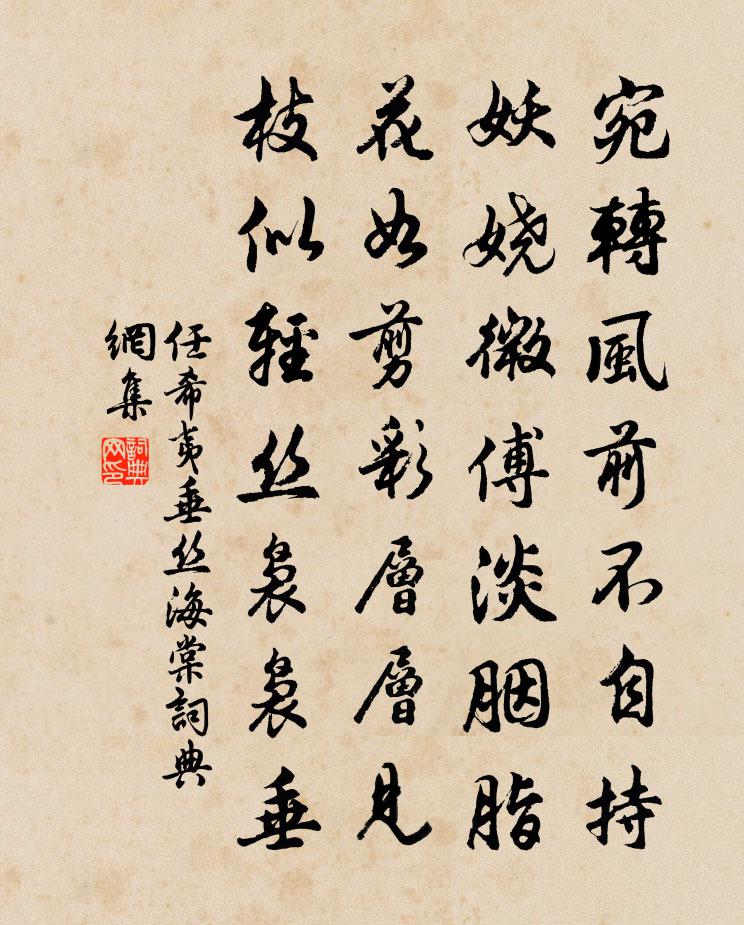 宛轉風前不自持
妖嬈微傅淡胭脂
花如剪彩層層見
枝似輕丝裊裊垂
任希夷垂丝海棠詞典
網集
詞典
网印